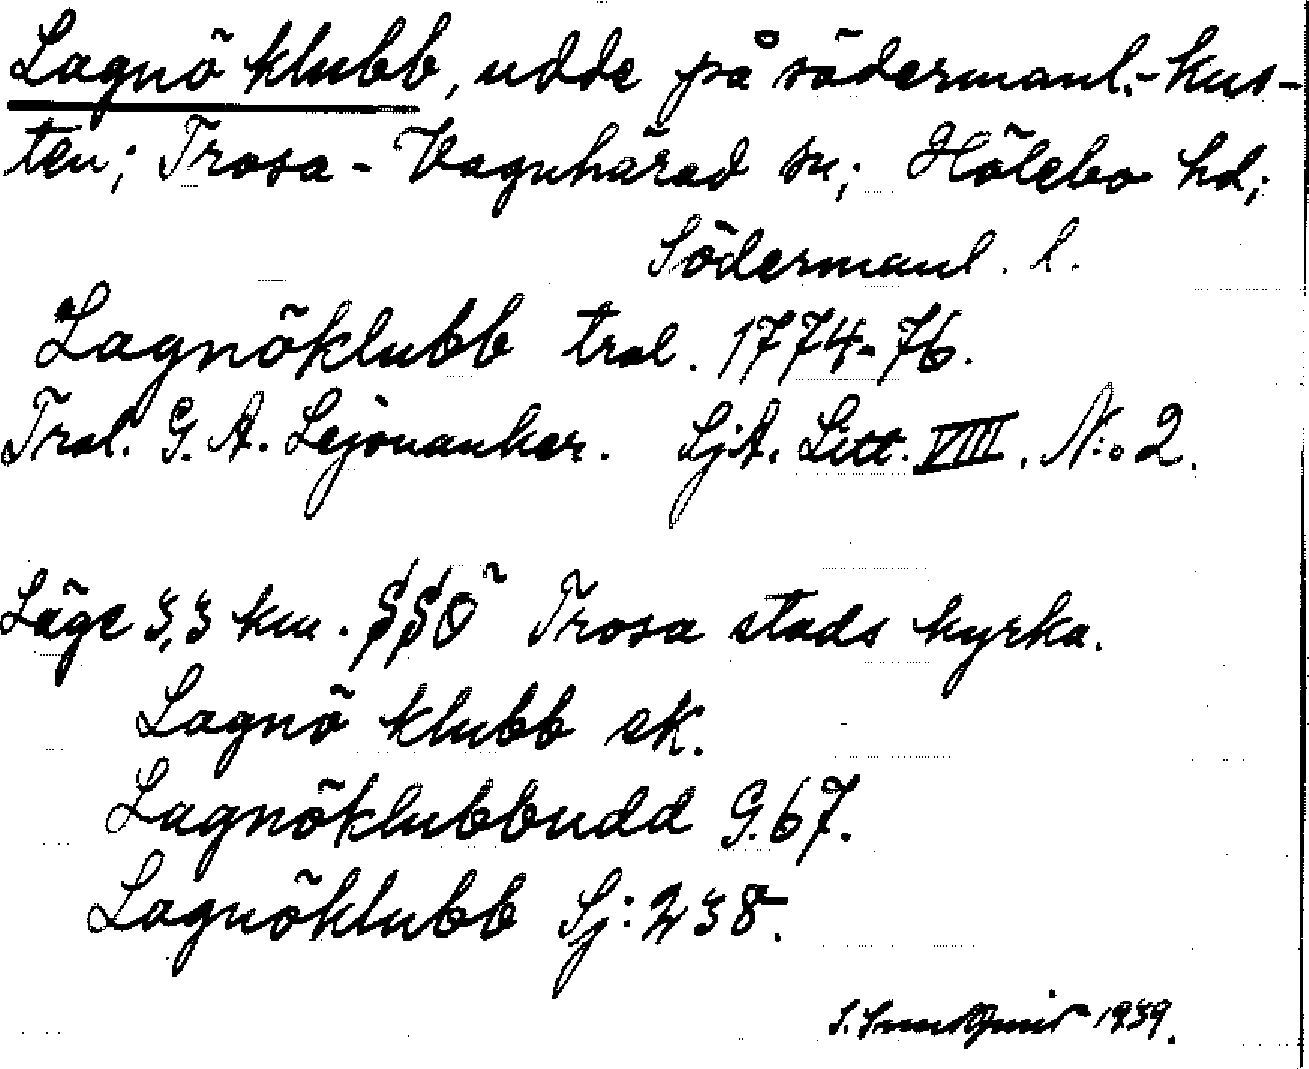 Lagnö klubb, udde på södermanl.-kus-
ten; Trosa-Vagnhärad sn; Hölebo hd;
Södermanl. l.
Lagnöklubb tral. 1774-76.
Tral. G. A. Lejonanker. SjA. Litt. VIII. N:o 2.
Läge 3,3 km. SSÖ Trosa stads kyrka.
Lagnö klubb ek.
Lagnöklubbudd G.67.
Lagnöklubb Sj:238.
1939.